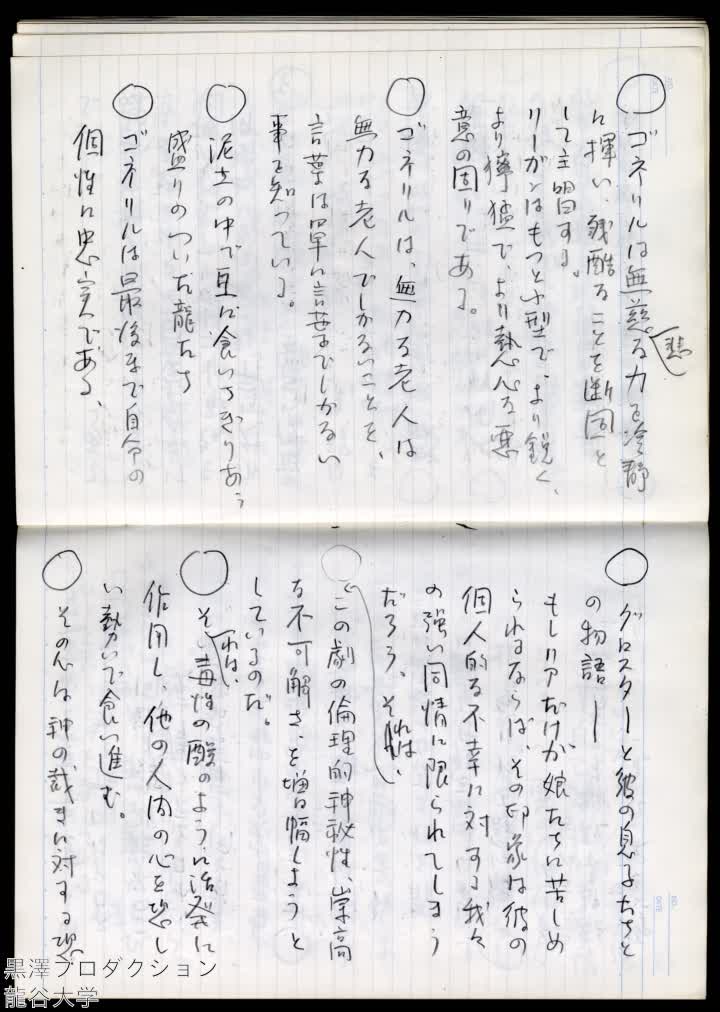 ○ ゴネリルは無慈る力を冷静
悲
に揮い、残酷ることを断固と
して主明する。
リーガンはもつと小型で、より鋭く、
より獰猛で、より熱心る悪
意の固りである。
○ ゴネリルは、無力る老人は
無力る老人でしかるいことを、
言葉は単に言葉でしかるい
事を知っている。
○ 泥土の中で互に食いちぎりあう
盛りのついた龍たち
○ ゴネリルは最後まで自分の
個性に忠実である、
○ グロスターと彼の息子たちと
の物語ー
もしリアだけが娘たちに苦しめ
られるならば、その印象は彼の
個人的る不幸に対する我々
の強い同情に限られてしまう
だろう、それは、
○ この劇の倫理的神秘性、崇高
る不可解さ、を増幅しようと
しているのだ。
○ それは、毒性の酸のように活発に
作用し、他の人内の心を恐し
い勢いで食い進む。
○ その心は神の裁きに対する恐
黒澤プロダクション
龍谷大学